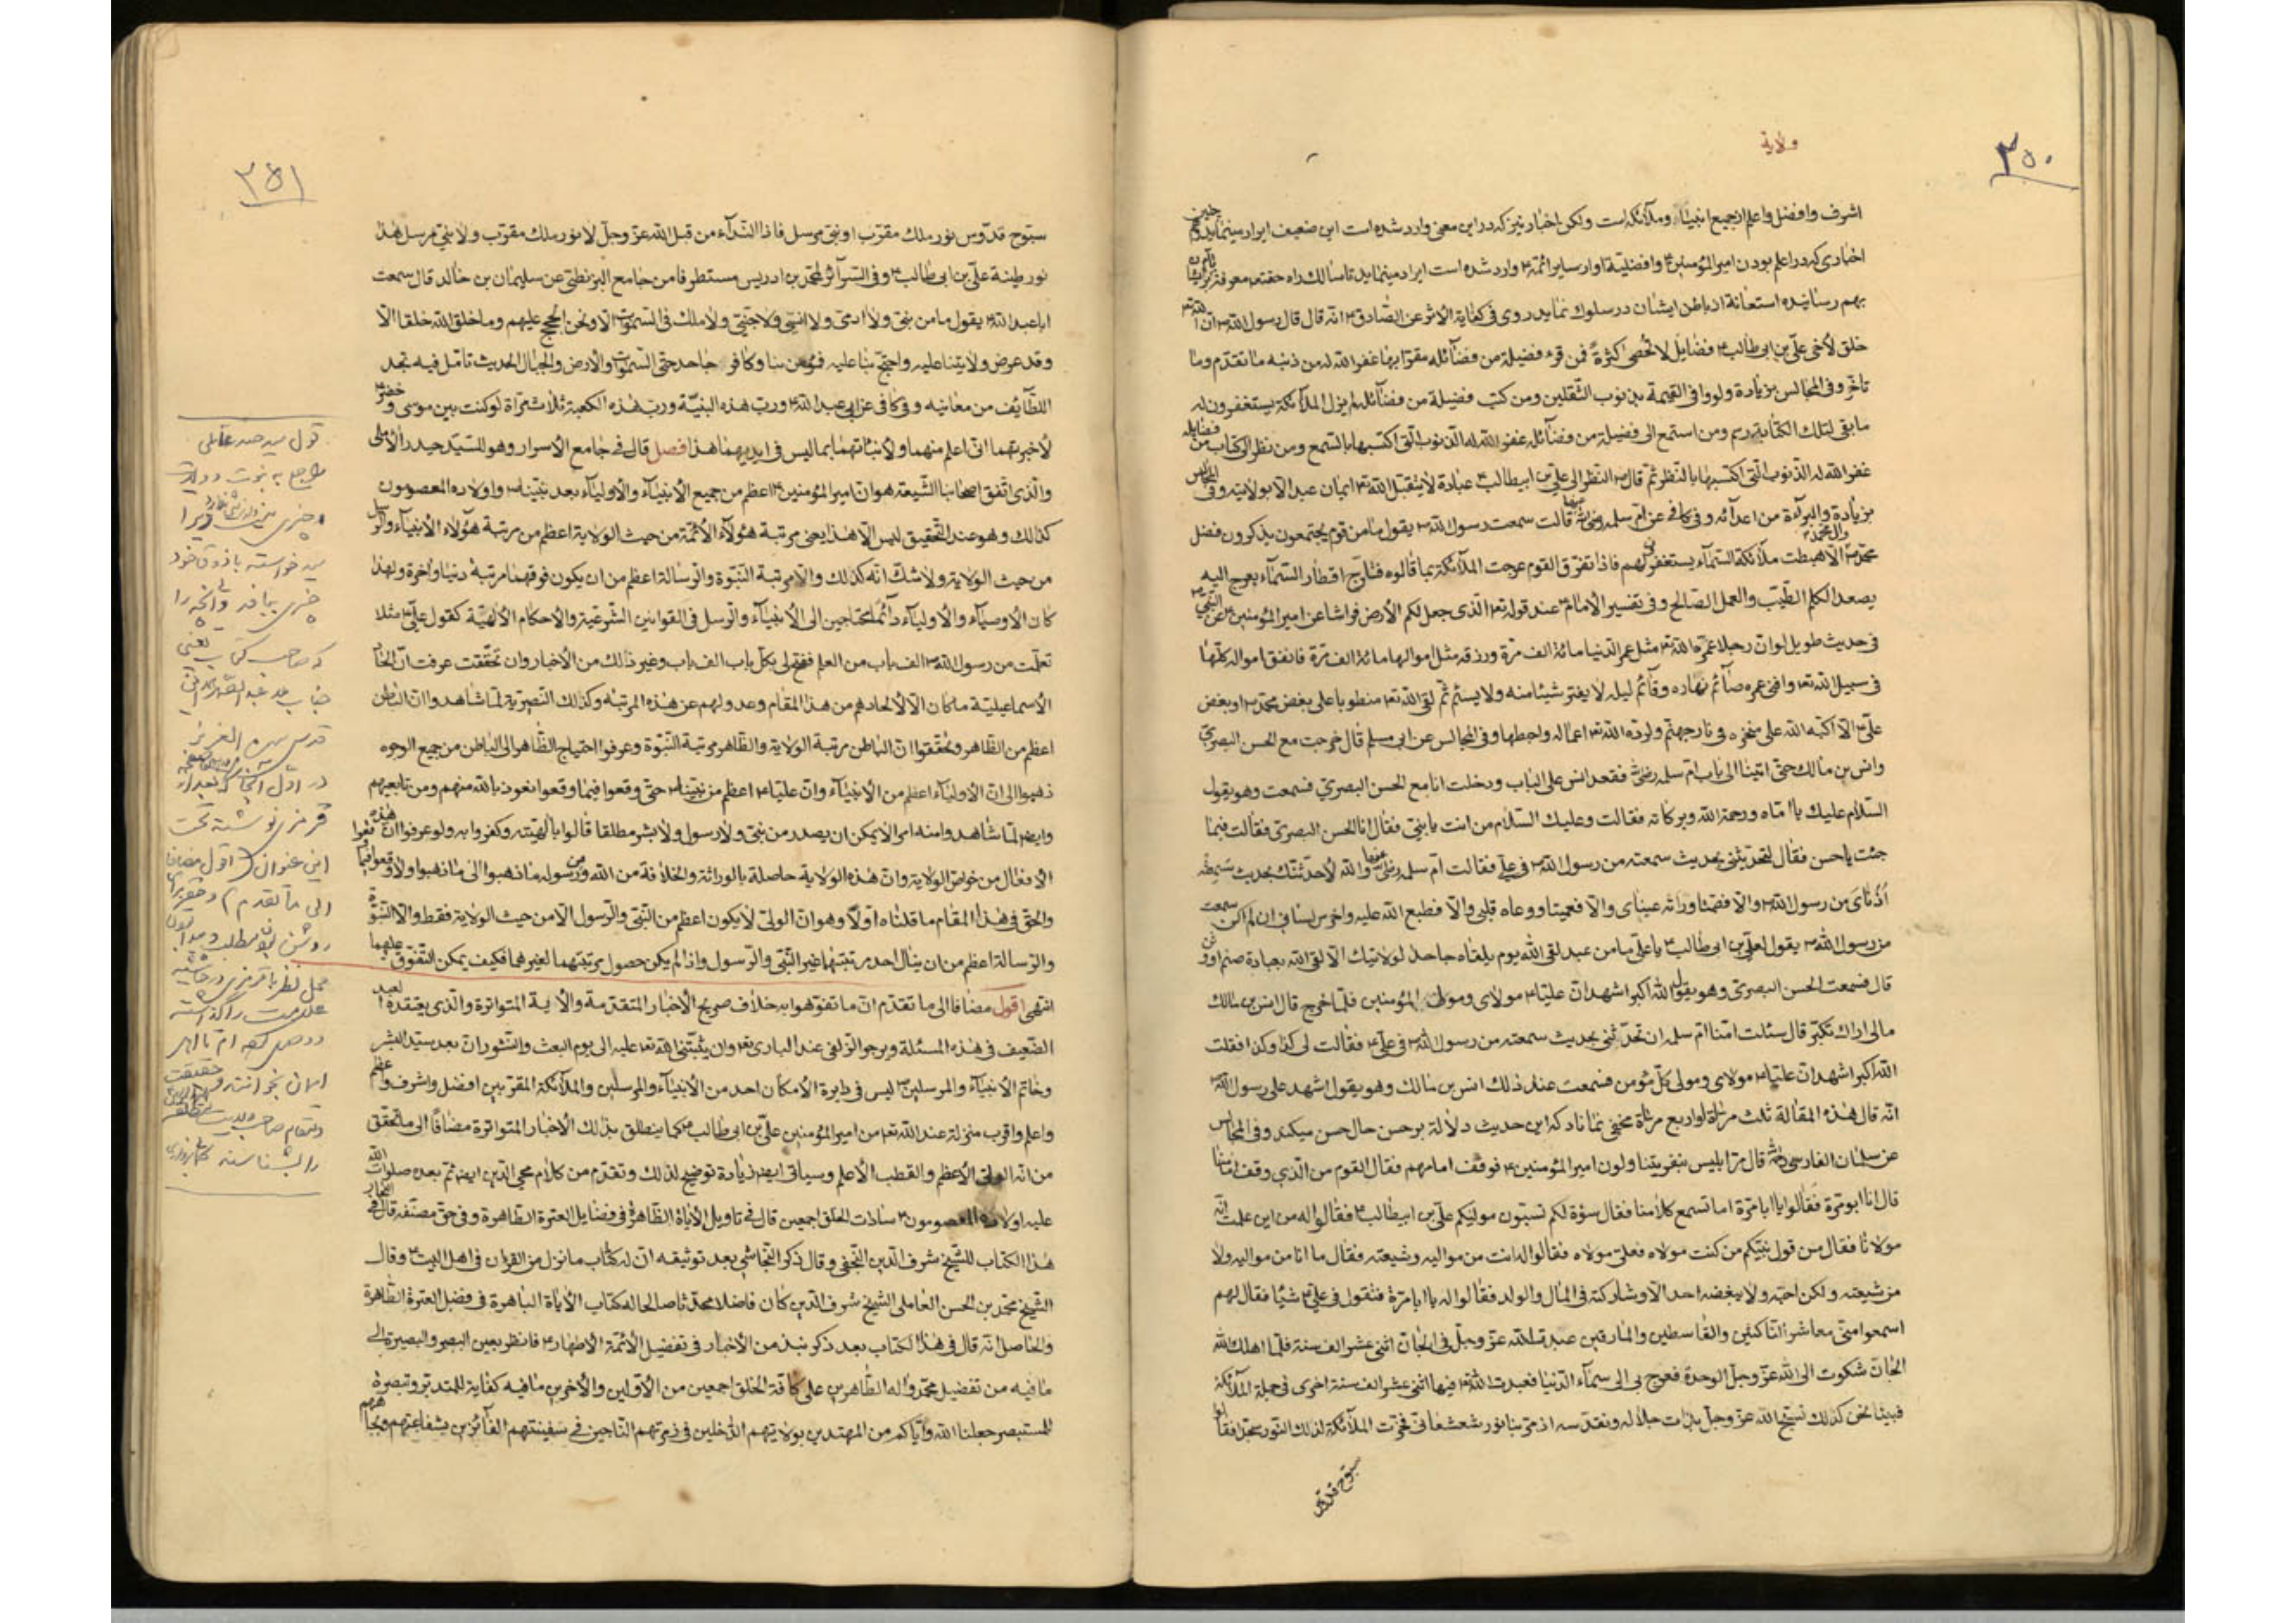 ٣٥٠
ولاية
اشرف وافضل واعلم از جميع انبيا وملائكه است ولكن اخبار نيز كه در اين معنى وارد شده است اين ضعيف ايراد مينمايد
اخبارى كه در اعلم بودن امير المؤمنين ؏ وافضلية او از ساير ائمة ؏ وارد شده است ايراد مينمايد تا سالك راه حقتعه معرفت
بهم رسانيده استعانة از باطن ايشان در سلوك نمايد روى فى كفاية الاثر عن الصادق ؏ انه قال قال رسول الله ص ان الله تعه
خلق لأخى على بن ابى طالب ؏ فضايل لا تحصى كثرة فمن قرء فضيلة من فضائله مقرّا بها غفر الله له من ذنبه ما تقدم وما
تاخّر وفى المجالس بزيادة ولو وافى القيمة بذنوب الثقلين ومن كتب فضيلة من فضائله لم يزل الملائكة يستغفرون له
ما بقى لتلك الكتابة رسم ومن استمع الى فضيلة من فضائله غفر الله له الذنوب التى اكتسبها بالسمع ومن نظر الى كتاب من فضايله
غفر الله له الذنوب التى اكتسبها بالنظر ثم قال ص النظر الى على بن ابيطالب ؏ عبادة لا يتقبل الله تعه ايمان عبد الا بولايته وفى المجالس
بزيادة والبرآءة من اعدآئه وفى كافى عن ام سلمه رضى الله عنها قالت سمعت رسول الله ص يقول ما من قوم يجتمعون يذكرون فضل
محمد وآل محمد الا هبطت ملائكة السمآء يستغفر لهم فاذا تفرق القوم عرجت الملائكة بما قالوه فتأرّج اقطار السمآء بعرج اليه
يصعد الكلم الطيب والعمل الصالح وفى تفسير الامام ؏ عند قوله تعه الذى جعل لكم الأرض فراشا عن امير المؤمنين ؏ عن النبى ص
فى حديث طويل لو ان رجلا عمّره الله تعه مثل عمر الدنيا مائة الف مرة ورزقه مثل اموالها مائة الف مرة فانفق امواله كلها
فى سبيل الله تعه وافنى عمره صائم نهاره وقائم ليله لا يفتر شيئا منه ولا يسئم ثم لقى الله تعه منطويا على بغض محمد ص او بغض
على ؏ الا اكبّه الله على منخره فى نار جهنم ولردّه الله تعه اعماله واحبطها وفى المجالس عن ابى مسلم قال خرجت مع الحسن البصرى
وانس بن مالك حتى اتينا الى باب ام سلمه رضى فقعد انس على الباب ودخلت انا مع الحسن البصرى فسمعت وهو يقول
السلام عليك يا اماه ورحمة الله وبركاته فقالت وعليك السلام من انت يا بنى فقال انا الحسن البصرى فقالت فيما
جئت يا حسن فقال لتحدثينى بحديث سمعته من رسول الله ص فى على فقالت ام سلمه رضى عنها والله لأحدثنك بحديث سمعته
اذناى من رسول الله ص والا فصمتا وراته عيناى والا فعميتا ووعاه قلبى والا فطبع الله عليه واخرس لسانى ان لم اكن سمعت
من رسول الله ص يقول لعلى بن ابى طالب ؏ يا على ما من عبد لقى الله يوم يلقاه جاحدا لولايتك الا لقى الله بعبادة صنم او وثن
قال فسمعت الحسن البصرى وهو يقول الله اكبر اشهد ان عليا ؏ مولاى ومولى المؤمنين فلما خرج قال انس بن مالك
مالى اراك تكبّر قال سئلت امنا ام سلمه ان تحدثنى بحديث سمعته من رسول الله ص فى على ؏ فقالت لى كذا وكذا فقلت
الله اكبر اشهد ان عليا ؏ مولاى ومولى كل مؤمن فسمعت عند ذلك انس بن مالك وهو يقول اشهد على رسول الله ص
انه قال هذه المقالة ثلث مراة او اربع مراة مخفى نماناد كه اين حديث دلالة بر حسن حال حسن ميكند وفى المجالس
عن سلمان الفارسى رضى قال مرّ ابليس بنفر يتناولون امير المؤمنين ؏ فوقف امامهم فقال القوم من الذى وقف امامنا
قال انا ابو مرة فقالوا يا ابا مرة اما تسمع كلامنا فقال سؤة لكم تسبون موليكم على بن ابيطالب ؏ فقالوا له من اين علمت انه
مولانا فقال من قول نبيكم من كنت مولاه فعلى مولاه فقالوا له انت من مواليه وشيعته فقال ما انا من مواليه ولا
من شيعته ولكن احبه ولا يبغضه احد الا وشاركته فى المال والولد فقالوا له يا ابا مرة فتقول فى على ؏ شيئا فقال لهم
اسمعوا منى معاشر الناكثين والقاسطين والمارقين عبدت الله عز وجل فى الجان اثنى عشر الف سنة فلما اهلك الله
الجان شكوت الى الله عز وجل الوحدة فعرج بى الى سمآء الدنيا فعبدت الله تعه فيها اثنى عشر الف سنة اخرى فى جملة الملائكة
فبينا نحن كذلك نسبح الله عز وجل ونقدسه اذ مرّ بنا نور شعشعانى فخرّت الملائكة لذلك النور سجّدا فقالوا
سبوح قدوس
٣٥١
سبوح قدوس نور ملك مقرب او نبى مرسل فاذا الندآء من قبل الله عز وجل لا نور ملك مقرب ولا نبى مرسل هذا
نور طينة على بن ابى طالب ؏ وفى السرآئر لمحمد بن ادريس مستطرفا من جامع البزنطى عن سليمان بن خالد قال سمعت
ابا عبد الله ؏ يقول ما من نبى ولا ادمى ولا انسى ولا جنى ولا ملك فى السموات الا ونحن الحجج عليهم وما خلق الله خلقا الا
وقد عرض ولايتنا عليه واحتج بنا عليه فمؤمن بنا وكافر جاحد حتى السموات والأرض والجبال الحديث تامل فيه تجد
اللطآيف من معانيه وفى كافى عن ابى عبد الله ؏ ورب هذه البنية ورب هذه الكعبة ثلاث مراة لو كنت بين موسى وخضر
لأخبرتهما انى اعلم منهما ولأنباتهما بما ليس فى ايديهما هذا فصل قال فى جامع الأسرار وهو للسيد حيدر الأملى
والذى اتفق اصحابنا الشيعة هو ان امير المؤمنين ؏ اعظم من جميع الأنبيآء والأوليآء بعد نبينا ص واولاده المعصومون
كذلك وهو عند التحقيق ليس الا هذا يعنى مرتبة هؤلآء الأئمة من حيث الولاية اعظم من مرتبة هؤلاء الأنبيآء والرسل
من حيث الولاية ولا شك انه كذلك والا مرتبة النبوة والرسالة اعظم من ان يكون فوقهما مرتبة دنيا واخرة ولهذا
كان الأوصيآء والأوليآء دآئما محتاجين الى الأنبيآء والرسل فى القوانين الشرعية والأحكام الألهية كقول على ؏ مثلا
تعلمت من رسول الله ص الف باب من العلم ففتح لى بكل باب الف باب وغير ذالك من الأخبار وان تحققت عرفت ان
الأسماعيلية ما كان الا لالحادهم من هذا المقام وعدولهم عن هذه المرتبه وكذلك النصيرية لما شاهدوا ان الباطن
اعظم من الظاهر وتحققوا ان الباطن مرتبة الولاية والظاهر مرتبة النبوة وعرفوا احتياج الظاهر الى الباطن من جميع الوجوه
ذهبوا الى ان الأوليآء اعظم من الأنبيآء وان عليا ؏ اعظم من نبينا ص حتى وقعوا فيما وقعوا نعوذ بالله منهم ومن تابعيهم
وايضا لما شاهدوا منه امرا لا يمكن ان يصدر من نبى ولا رسول ولا بشر مطلقا قالوا بألهيته وكفروا به ولو عرفوا ان هذه
الافعال من خواص الولاية وان هذه الولاية حاصلة بالوراثة والخلافة من الله ومن رسوله ما ذهبوا الى ما ذهبوا ولا وقعوا فيما وقعوا
والحق فى هذا المقام ما قلناه اولا وهو ان الولى لا يكون اعظم من النبى والرسول الا من حيث الولاية فقط والا النبوة
والرسالة اعظم من ان ينال احد مرتبتهما غير النبى والرسول واذا لم يكن حصول مرتبتهما لغيرهما فكيف يمكن التفوق عليهما
انتهى اقول مضافا الى ما تقدم ان ما تفوهوا به خلاف صريح الأخبار المتقدمة والأتية المتواترة والذى يعتقده العبد
الضعيف فى هذه المسئلة ويرجو الزلفى عند البارى تعه وان يثبتنى الله تعه عليه الى يوم البعث والنشور ان بعد سيد البشر
وخاتم الأنبيآء والمرسلين ليس فى دايرة الأمكان احد من الأنبيآء والمرسلين والملآئكة المقربين افضل واشرف واعظم
واعلم واقرب منزلة عند الله تعه من امير المؤمنين على بن ابى طالب ؏ كما ينطلق بذلك الأخبار المتواترة مضافا الى ما تحقق
من انه الولى الأعظم والقطب الأعلم وسياتى ايضا زيادة توضيح لذلك وتقدم من كلام محى الدين ايضا ثم بعده صلوات الله
عليه اولاده المعصومون ؏ سادات الخلق اجمعين قال فى تاويل الأياة الظاهرة فى فضايل العترة الطاهرة وفى حق مصنفه قال فى البحار
هذا الكتاب للشيخ شرف الدين النجفى وقال ذكر النجاشى بعد توثيقه ان له كتاب ما نزل من القران فى اهل البيت ؏ وقال
الشيخ محمد بن الحسن العاملى الشيخ شرف الدين كان فاضلا محدثا صالحا له كتاب الأياة الباهرة فى فضل العترة الطاهرة
والحاصل انه قال فى هذا الكتاب بعد ذكر نبذ من الأخبار فى تفضيل الأئمة الأطهار ؏ فانظر بعين البصر والبصيرة الى
ما فيه من تفضيل محمد واله الطاهرين على كافة الخلق اجمعين من الأولين والأخرين ما فيه كفاية للمتدبر وتبصرة
للمستبصر جعلنا الله واياكم من المهتدين بولايتهم الداخلين فى ذمتهم الناجين فى سفينتهم الفآئزين بشفاعتهم
قول سيد حيدر عاملى
راجع به نبوت وولايت
چيزى
ميخواسته با ذوق خود
چيزى ببافد وآنچه را
كه صاحب كتاب يعنى
جناب عبد الصمد همدانى
قدس سره العزيز
در اول
قرمز نوشته تحت
اين عنوان (اقول مضافا
الى ما تقدم)
روشن مطلب
محل نظر با قرمزى در حاشيه
علامت را گذاشته